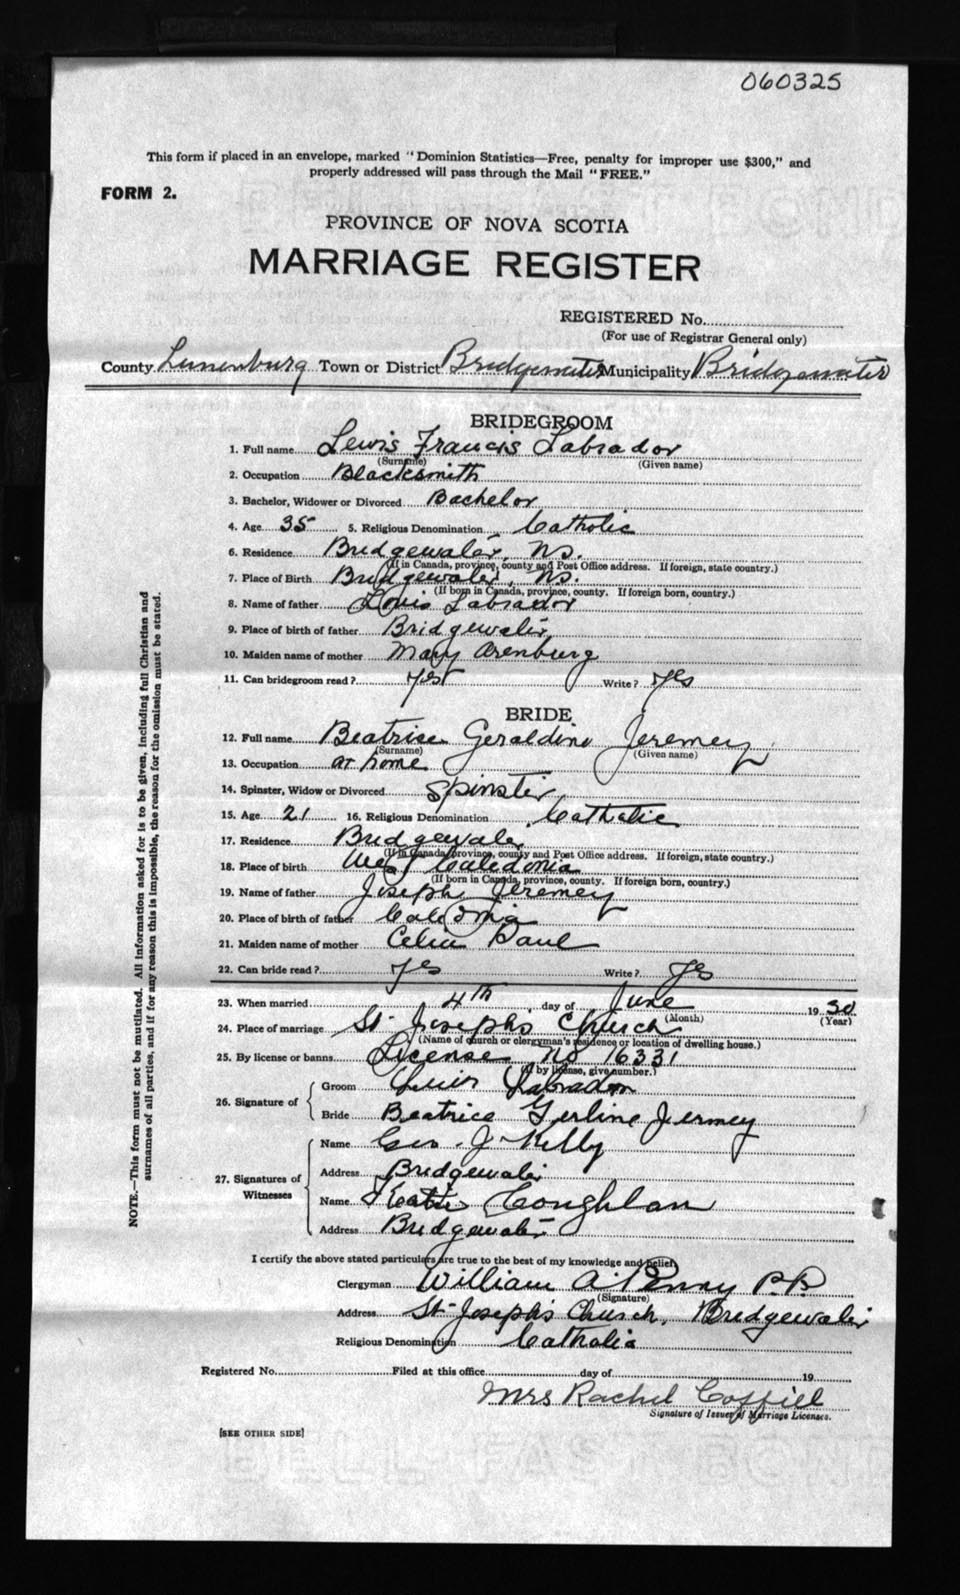 060325
This form if placed in an envelope, marked "Dominion Statistics—Free, penalty for improper use $300," and
properly addressed will pass through the Mail "FREE."
FORM 2.
PROVINCE OF NOVA SCOTIA
MARRIAGE REGISTER
REGISTERED No.
(For use of Registrar General only)
County Lunenburg Town or District Bridgewater Municipality Bridgewater
BRIDEGROOM
1. Full name Lewis Francis Labrador
(Surname) (Given name)
2. Occupation Blacksmith
3. Bachelor, Widower or Divorced Bachelor
4. Age 35 5. Religious Denomination Catholic
6. Residence Bridgewater, NS.
(If in Canada, province, county and Post Office address. If foreign, state country.)
7. Place of Birth Bridgewater, NS.
(If born in Canada, province, county. If foreign born, country.)
8. Name of father Louis Labrador
9. Place of birth of father Bridgewater
10. Maiden name of mother Mary Arenburg
11. Can bridegroom read? yes Write? yes
BRIDE
12. Full name Beatrice Geraldine Jeremey
(Surname) (Given name)
13. Occupation at home
14. Spinster, Widow or Divorced Spinster
15. Age 21 16. Religious Denomination Catholic
17. Residence Bridgewater
(If in Canada, province, county and Post Office address. If foreign, state country.)
18. Place of birth West Caledonia
(If born in Canada, province, county. If foreign born, country.)
19. Name of father Joseph Jeremey
20. Place of birth of father Caledonia
21. Maiden name of mother Celia Paul
22. Can bride read? yes Write? yes
23. When married 4th day of June 1930
(Month) (Year)
24. Place of marriage St. Joseph's Church
(Name of church or clergyman's residence or location of dwelling house.)
25. By license or banns License No 16331
(If by license, give number.)
26. Signature of Groom Luis Labrador
Bride Beatrice Gerline Jermey
27. Signatures of Witnesses Name Geo. J Kelly
Address Bridgewater
Name Coughlan
Address Bridgewater
I certify the above stated particulars are true to the best of my knowledge and belief
Clergyman William A. Penny P.P.
(Signature)
Address St. Joseph's Church, Bridgewater
Religious Denomination Catholic
Registered No. Filed at this office day of 19
Mrs Rachel Coffill
Signature of Issuer of Marriage Licenses.
[SEE OTHER SIDE]
NOTE.—This form must not be mutilated. All information asked for is to be given, including full Christian and
surnames of all parties, and if for any reason this is impossible, the reason for the omission must be stated.